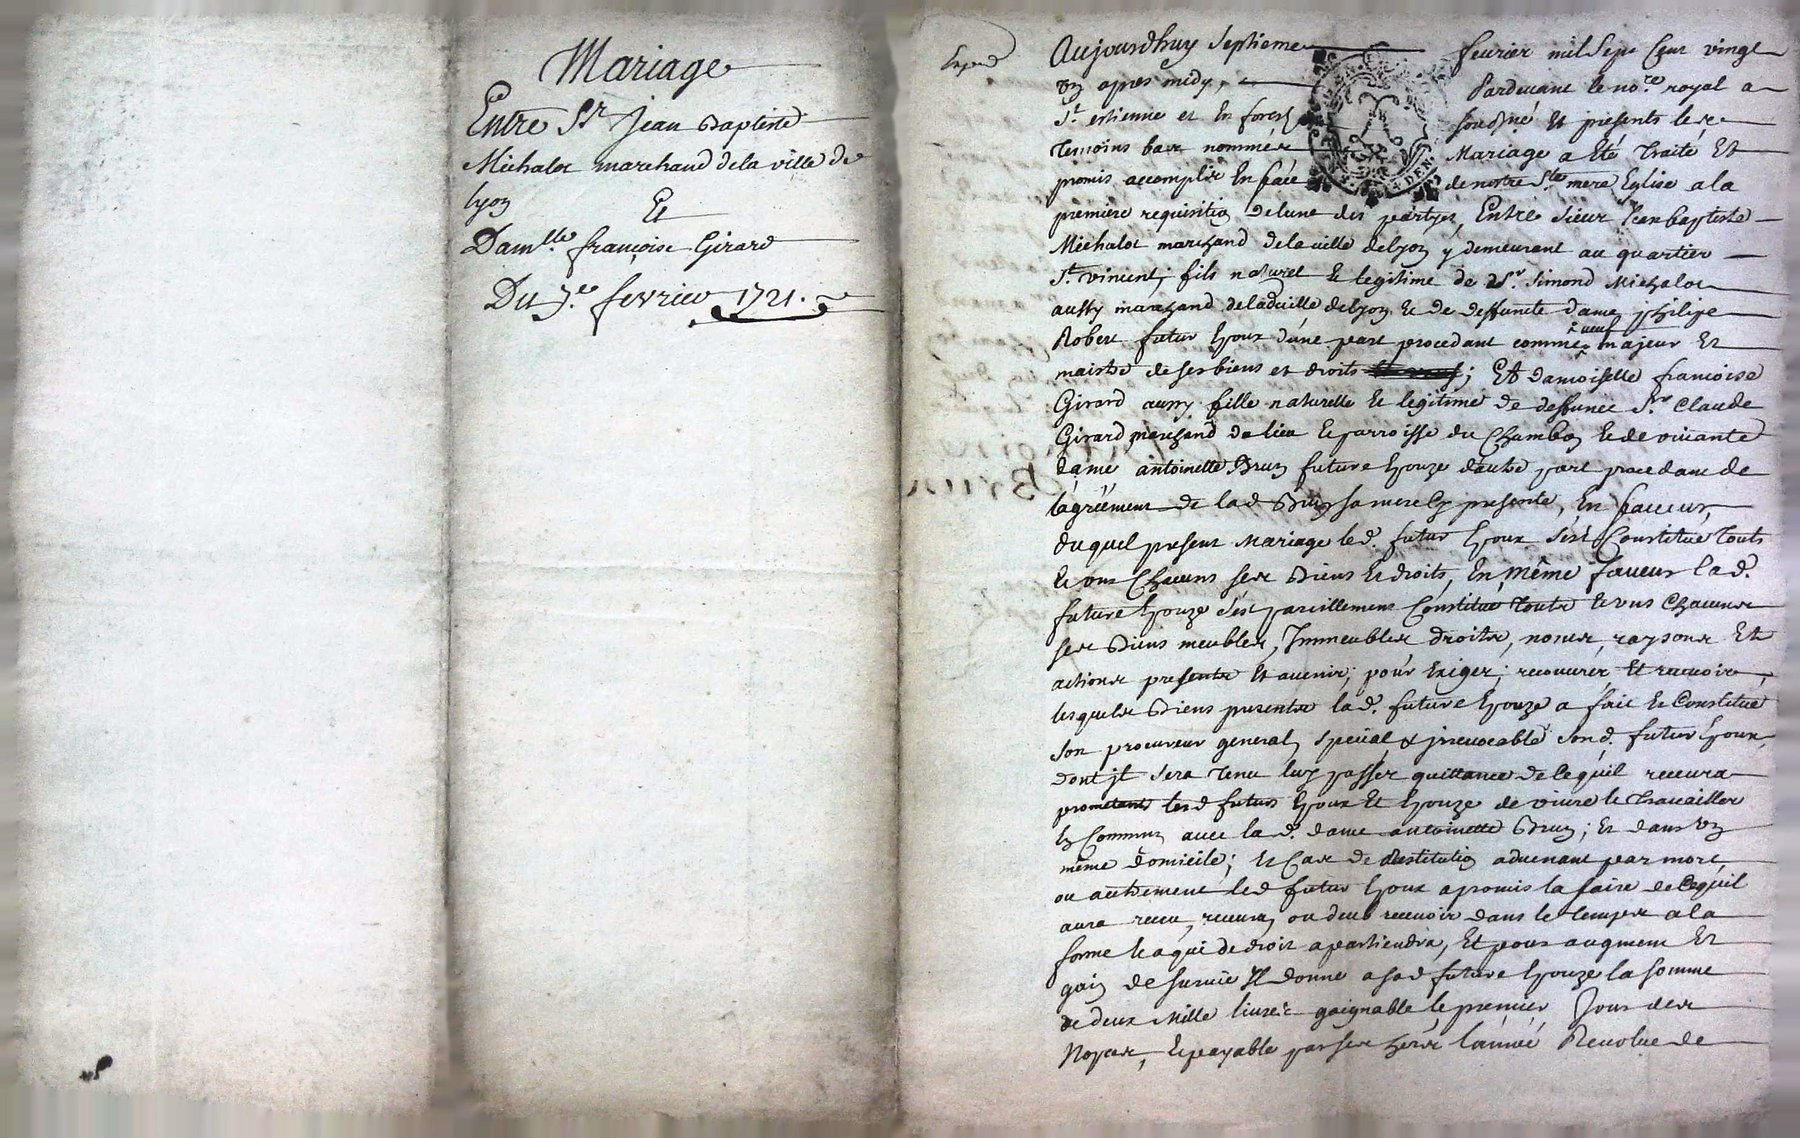 Mariage
Entre Sr Jean Baptiste
Michalot marchand de la ville de
lyon
Et
Damlle françoise Girard
Du 7e fevrier 1721.
Aujourdhuy septieme fevrier mil sept cent vingt
un apres midy, Pardevant le nore royal a
St estienne et en forest soussigné Et presents les
temoins bas nommés Mariage a Eté traité Et
promis accomplir En face de nostre Ste mere Eglise a la
premiere requisition de lune des partyes, Entre sieur Jean baptiste
Michalot marchand de la ville de lyon y demeurant au quartier
St vincent, fils naturel & legitime de Sr. Simond Michalot
aussy marchand de lad ville de lyon & de deffuncte dame philipe
Robert futur Epoux dune part procedant comme veuf majeur Et
maistre de ses biens et droits ; Et damoiselle francoise
Girard aussy fille naturelle & legitime de deffunct Sr Claude
Girard marchand du lieu & parroisse du Chambon & de vivante
dame antoinette Brun future Epouze dautre part procedant de
lagréement de lad Brun sa mere Ey presente, En faveur,
duquel present Mariage led. futur Epoux sest Constitué touts
& uns Chacuns ses Biens & droits, En même faveur lad.
future Epouze sest pareillement Constitué touts & uns Chacuns
ses Biens meubles, Immeubles droits, noms, raysons Et
actions presents Et avenir; pour Exiger, recouvrer Et recevoir,
lesquels Biens presents lad. future Epouze a fait & Constitué
son procureur general, special & jrrevocable sond. futur Epoux,
dont jl sera tenu luy passer quittance de Cequil recevra
promettants lesd futurs Epoux Et Epouze de vivre & travailler
En Commun avec lad. dame antoinette Brun; Et dans un
même domicile; Et Cas de Restitution advenant par mort,
ou autrement led futur Epoux a promis la faire de Cequil
aura receu, recevra, ou deub recevoir dans le temps a la
forme & a qui de droit apartiendra, Et pour augment Et
gain de survie Il donne a sad future Epouze la somme
de deux Mille livres gaignable le premier Jour des
Nopces, & payable par ses hers lannée Revolue de